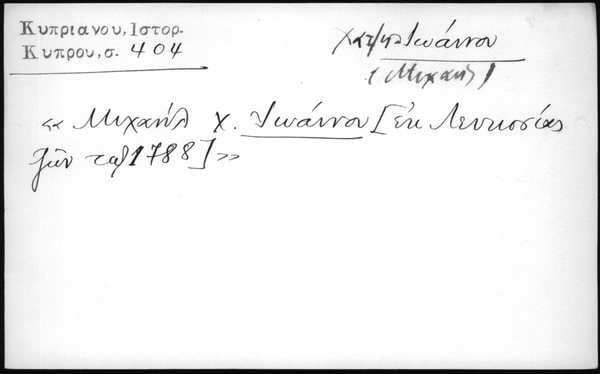 Κυπριανου, Ιστορ.
Κυπρου, σ. 404
Χατζη Ιωάννου
(Μιχαήλ)
« Μιχαήλ Χ. Ιωάννου [ἐκ Λευκοσίας
ζῶν τῷ 1788] »